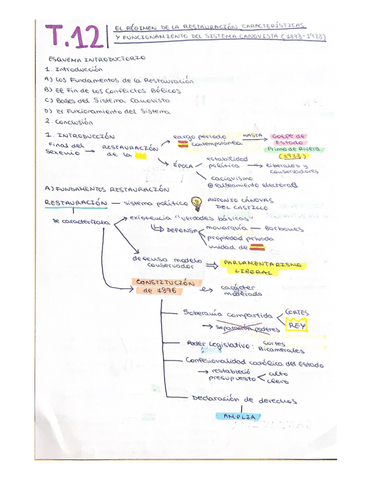 T.12
EL RÉGIMEN DE LA RESTAURACIÓN. CARACTERÍSTICAS
Y FUNCIONAMIENTO DEL SISTEMA CANOVISTA (1875-1923)
ESQUEMA INTRODUCTORIO
1. Introducción
A) Los Fundamentos de la Restauración
B) El Fin de los Conflictos Bélicos
C) Bases del Sistema Canovista
D) El Funcionamiento del Sistema
2. Conclusión
1. INTRODUCCIÓN
Final del Sexenio → RESTAURACIÓN de la
largo periodo contemporánea
HASTA
Golpe de Estado
Primo de Rivera
(1923)
ÉPOCA
estabilidad política → liberales y conservadores
caciquismo
falseamiento electoral
A) FUNDAMENTOS RESTAURACIÓN
RESTAURACIÓN → sistema político
ANTONIO CÁNOVAS DEL CASTILLO
se caracterizaba
existencia "verdades básicas"
DEFENSA
monarquía → Borbones
propiedad privada
unidad de
defensa modelo conservador → PARLAMENTARISMO LIBERAL
CONSTITUCIÓN de 1876 → carácter moderado
Soberanía compartida
CORTES
REY
→ separación poderes
Poder Legislativo: Cortes Bicamerales
Confesionalidad católica del Estado
→ restableció presupuesto
culto
clero
Declaración de derechos
AMPLIA